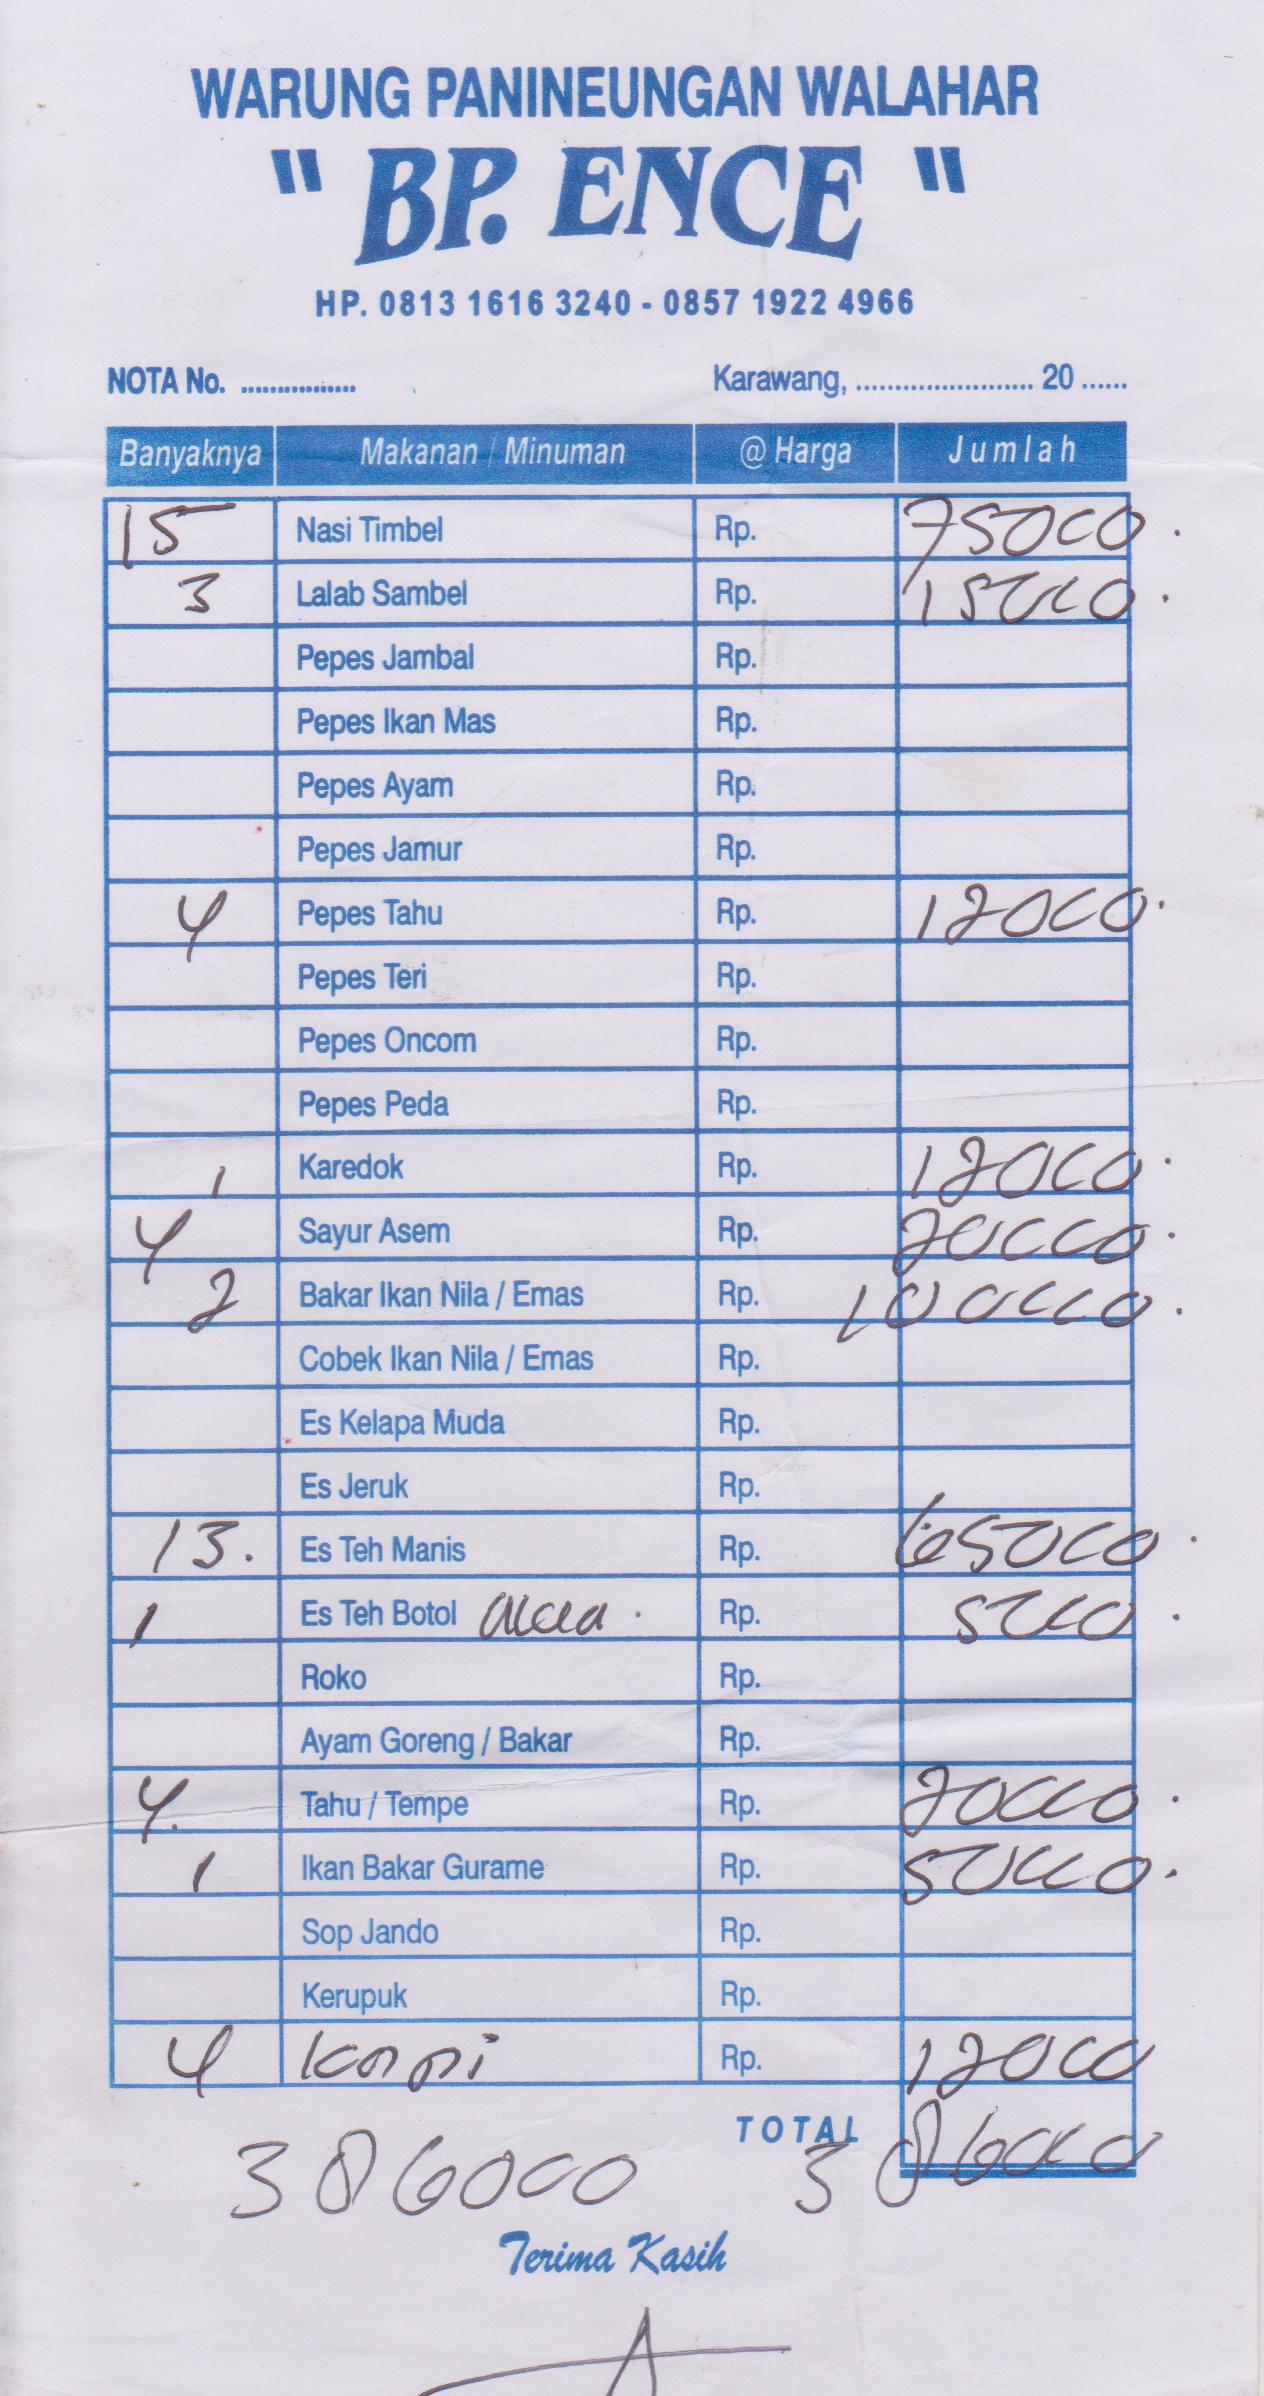 WARUNG PANINEUNGAN WALAHAR
" BP. ENCE "
HP. 0813 1616 3240 - 0857 1922 4966
NOTA No. ................ Karawang, ....................... 20 ......
Banyaknya Makanan / Minuman @ Harga Jumlah
15 Nasi Timbel Rp. 75000.
3 Lalab Sambel Rp. 15000.
Pepes Jambal Rp.
Pepes Ikan Mas Rp.
Pepes Ayam Rp.
Pepes Jamur Rp.
4 Pepes Tahu Rp. 12000.
Pepes Teri Rp.
Pepes Oncom Rp.
Pepes Peda Rp.
1 Karedok Rp. 12000.
4 Sayur Asem Rp. 20000.
2 Bakar Ikan Nila / Emas Rp. 100000.
Cobek Ikan Nila / Emas Rp.
Es Kelapa Muda Rp.
Es Jeruk Rp.
13. Es Teh Manis Rp. 65000.
1 Es Teh Botol Rp. 5000.
Roko Rp.
Ayam Goreng / Bakar Rp.
4. Tahu / Tempe Rp. 20000.
1 Ikan Bakar Gurame Rp. 50000.
Sop Jando Rp.
Kerupuk Rp.
4 kopi Rp. 12000
TOTAL
386000 386000
Terima Kasih